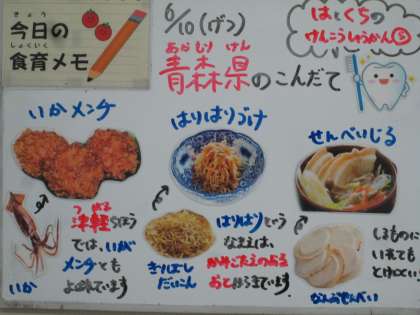 きょう
今日の
しょくいく
食育メモ
6/10(げつ)
あおもりけん
青森県のこんだて
はとくちの
けんこうしゅうかん⑤
いかメンチ
はりはりづけ
せんべいじる
つがる
津軽ちほう
では、いがメ
メンチとも
よばれています
いか
きりぼし
だいこん
はりはりという
なまえは、
かみごたえのある
おとからきています
しるものに
いれても
とけにくい
なんぶせんべい